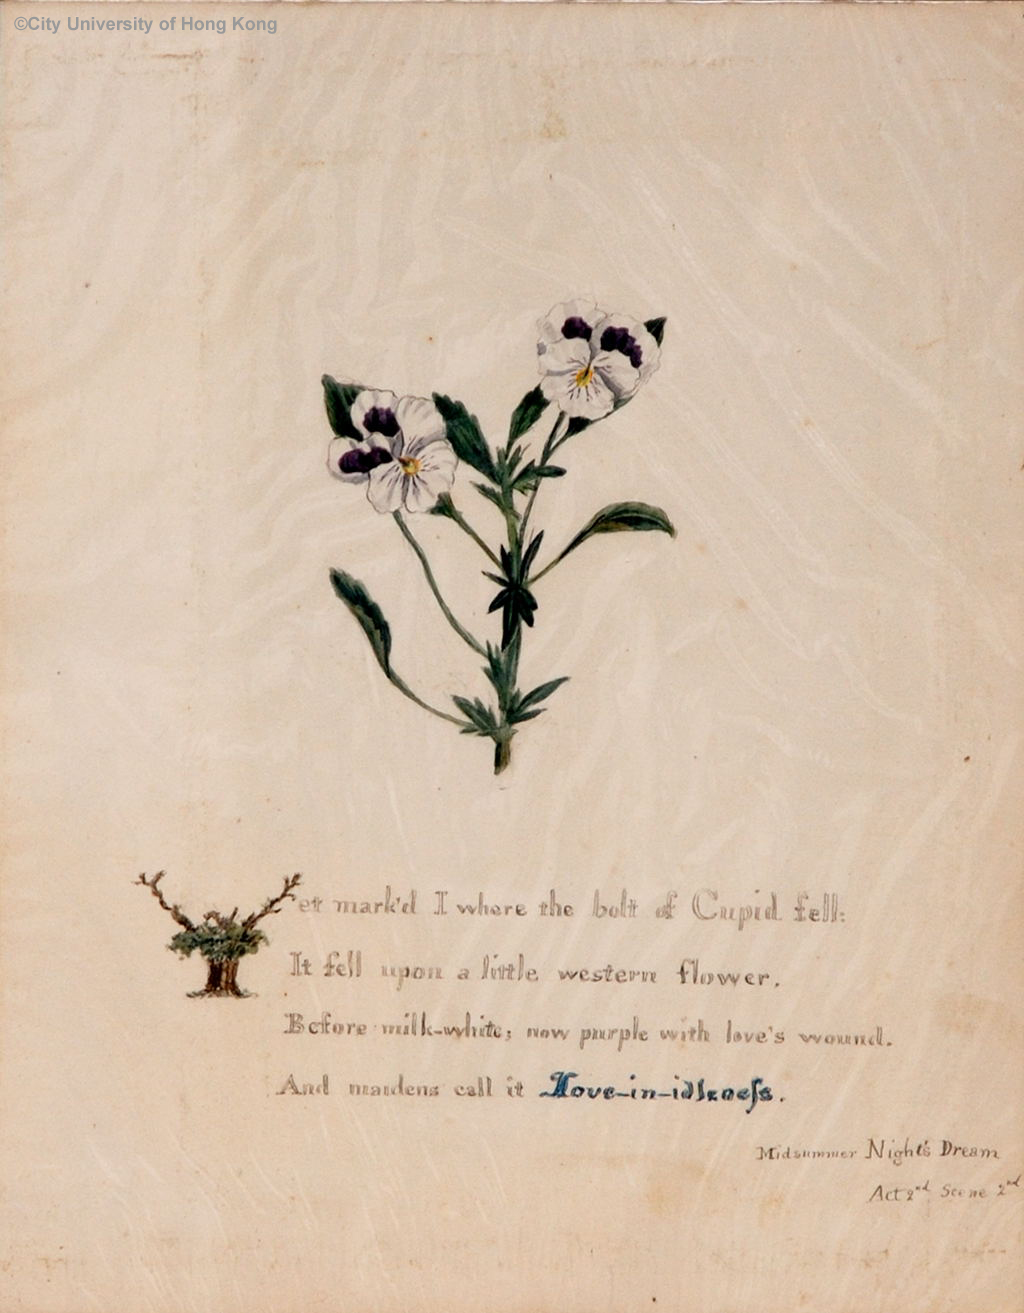 ©City University of Hong Kong
Yet mark'd I where the bolt of Cupid fell:
It fell upon a little western flower.
Before milk-white; now purple with love's wound.
And maidens call it Love-in-idleneſs.
Midsummer Night's Dream
Act 2nd Scene 2nd